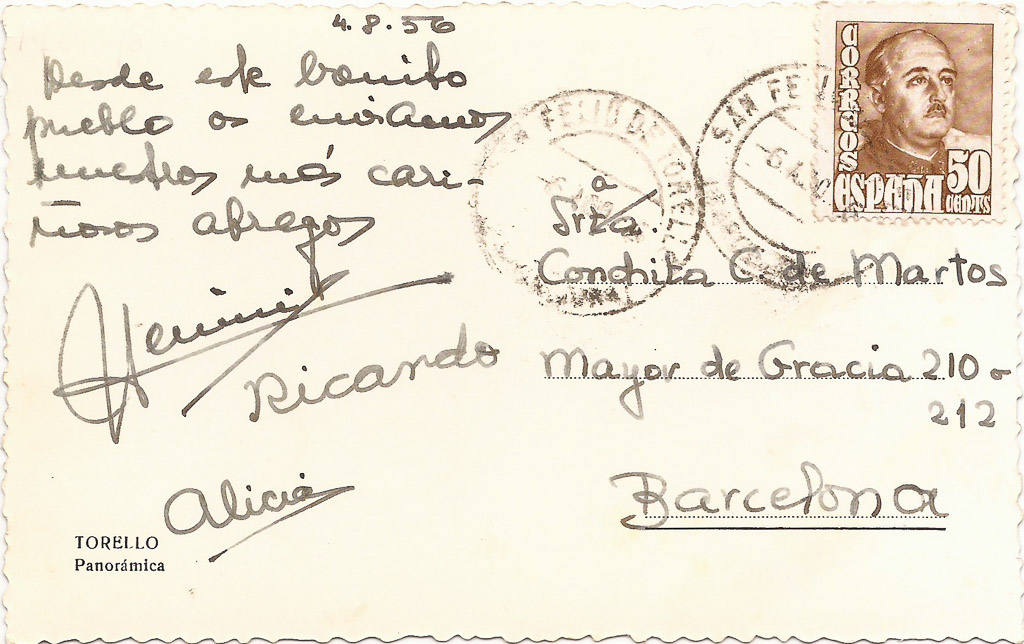 4.8.56
Desde este bonito
pueblo os enviamos
nuestros más cari-
ñosos abrazos
Ricardo
Alicia
TORELLO
Panorámica
a
Srta.
Conchita C. de Martos
Mayor de Gracia 210 o
212
Barcelona
CORREOS
ESPAÑA
50
CENTS
SAN FELIU DE TORELLO
SAN FELIU